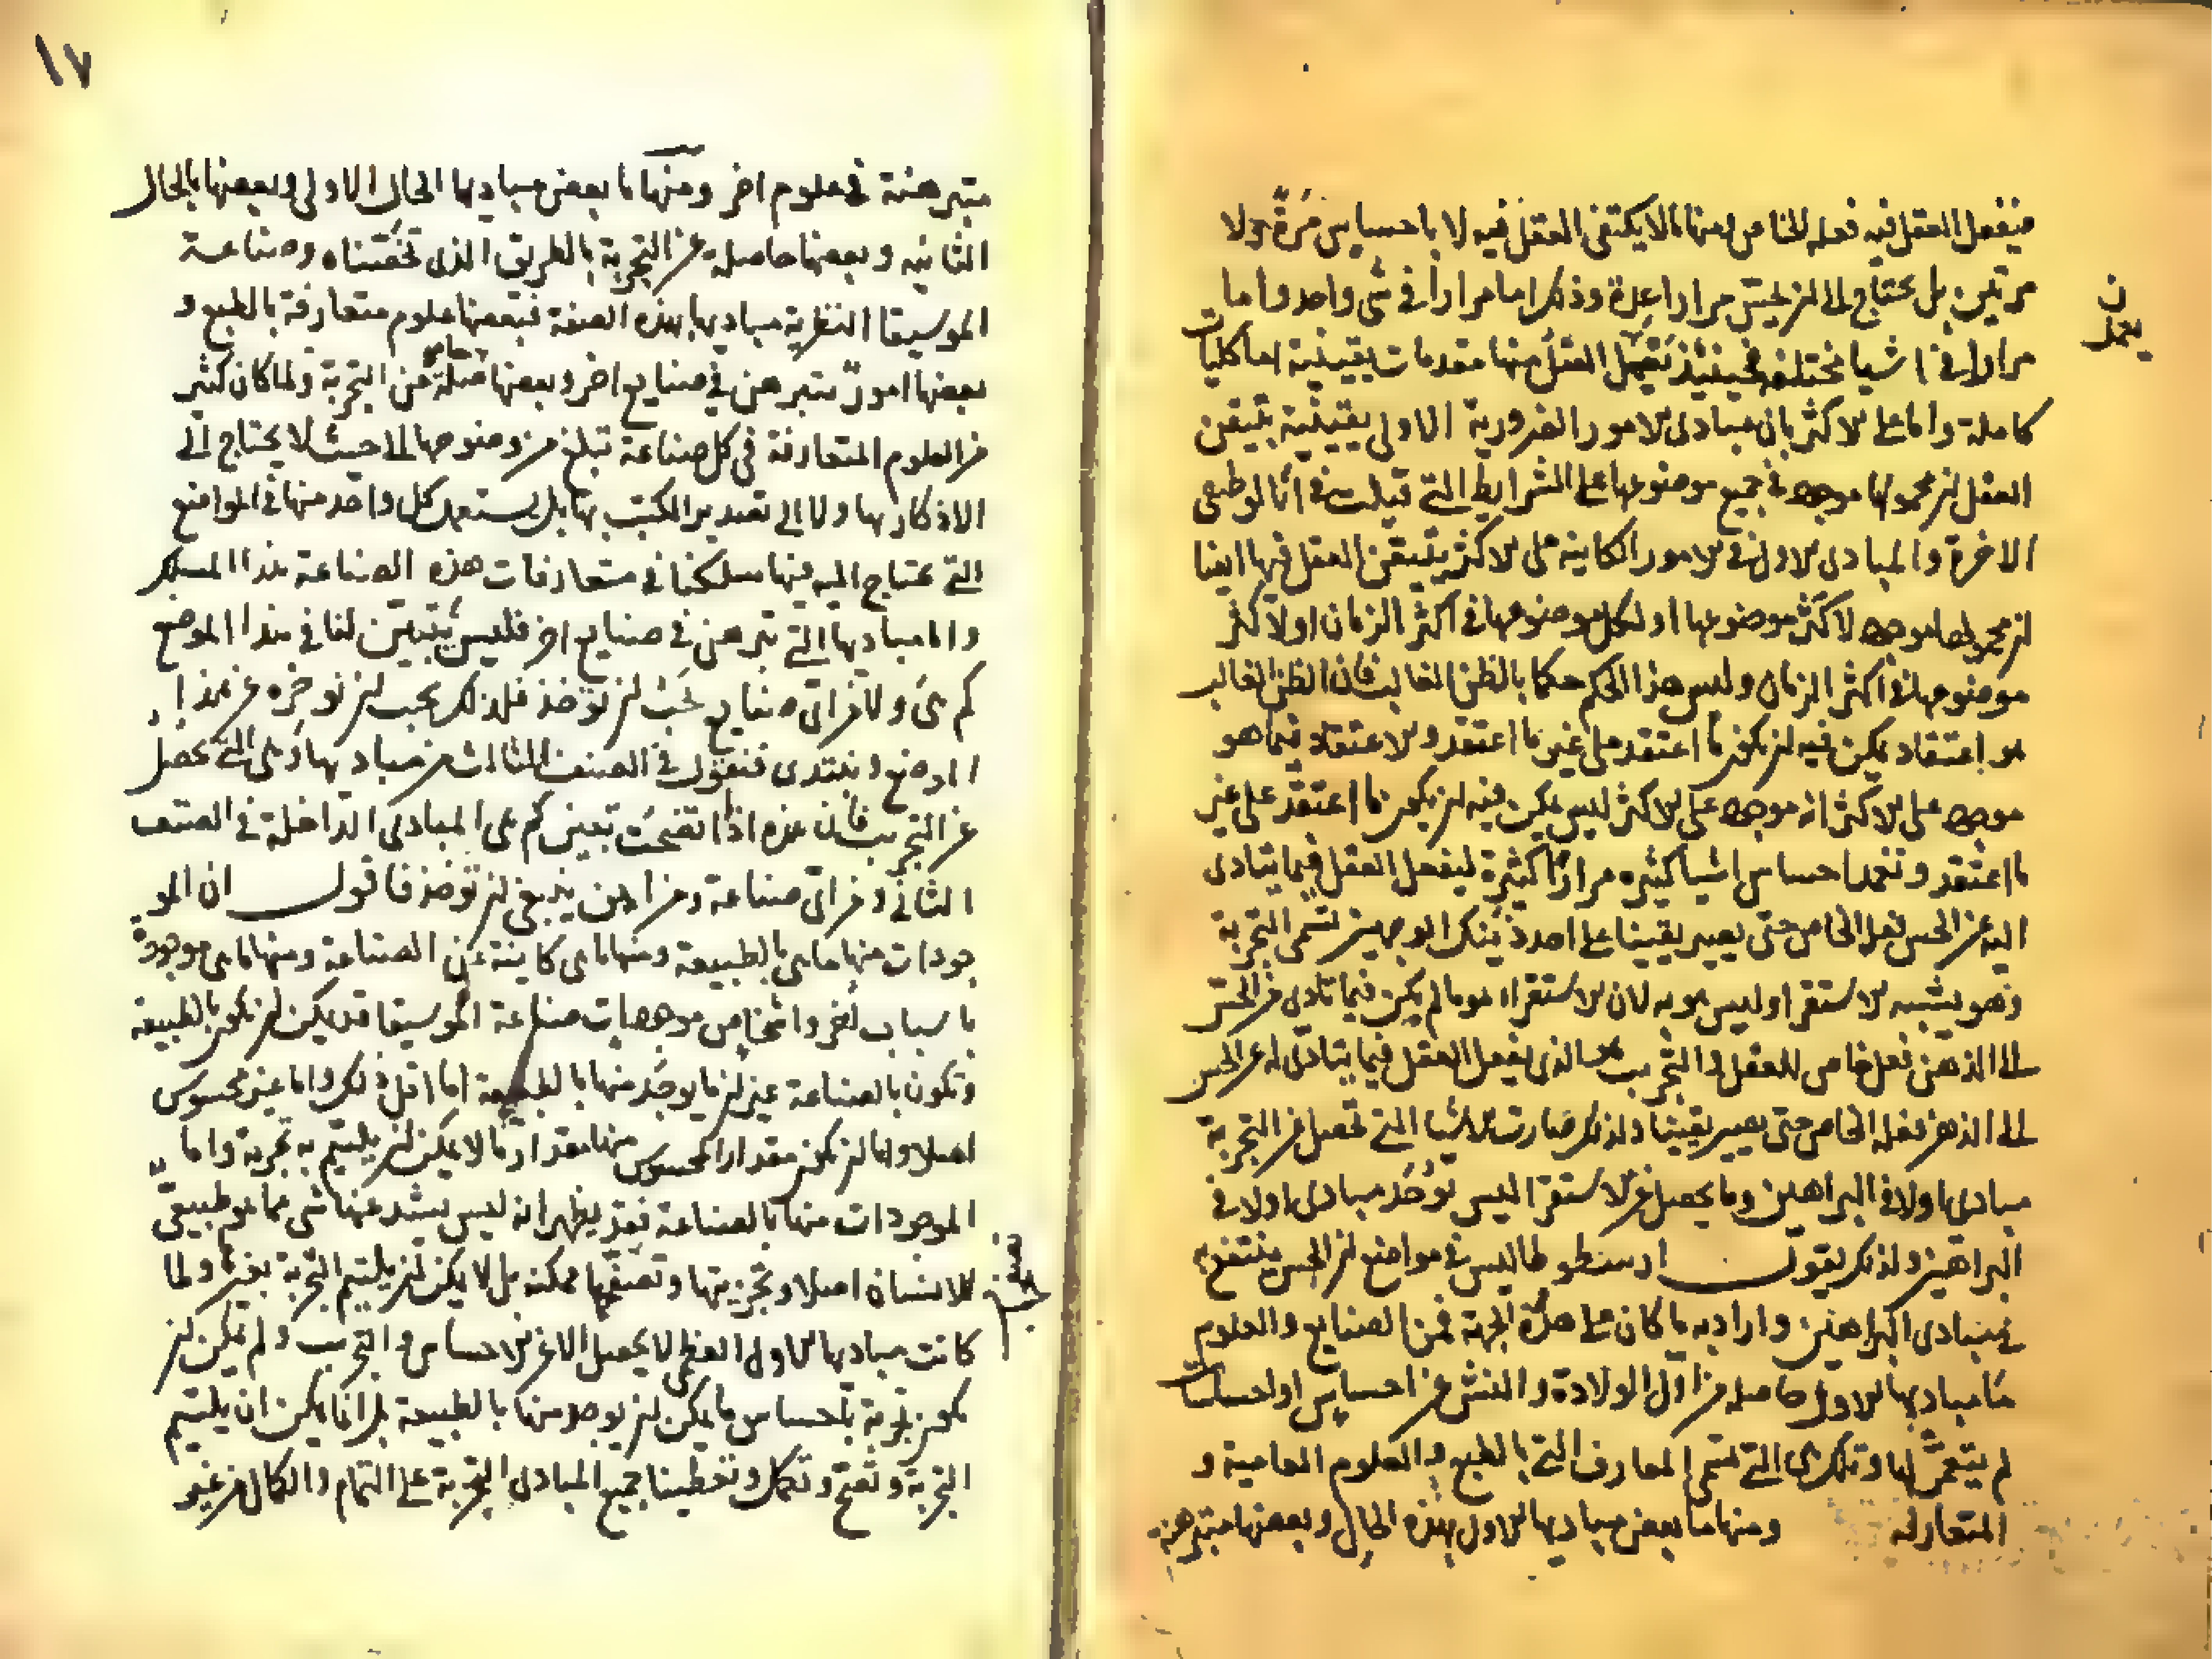 فيفعل العقل فيه فعله الخاص ومنها ما لا يكتفى العقل فيه لا باحساس مرة ولا
مرتين بل يحتاج الى ان يحس مرارا عدة وذلك اما مرارا في شى واحد واما
مرارا في اشيا مختلفه فحينئذ العقل منها مقدمات يقينية اما كليات
كاملة واما على الاكثر بان مبادى الامور الضرورية الاولى يقينية يتيقن
العقل ان محمولها موجود في جميع موضوعها على الشرايط التى قيلت في انالوطيقى
الاخرة والمبادى الاول في الامور الكاينه على الاكثر يتيقن العقل فيها ايضا
ان محمولها موجود لاكثر موضوعها او لكل موضوعها في اكثر الزمان او لاكثر
موضوعها في اكثر الزمان وليس هذا الحكم حكما بالظن الغالب فان الظن الغالب
هو اعتقاد يمكن فيه ان يكون ما اعتقد على غير ما اعتقد والاعتقاد فيما هو
موجود على الاكثر انه موجود على الاكثر ليس يمكن فيه ان يكون ما اعتقد على غير
ما اعتقد وتعمد احساس اشيا كثيره مرارا كثيرة ليفعل العقل فيما يتادى
اليه عن الحس فعله الخاص حتى يصير يقينا على احد ذينك الوجهين تسمى التجربة
وهو يشبه الاستقرا وليس هو به لان الاستقراء هو ما لم يكن فيما تادى من الحس
الى الذهن فعل خاص للعقل والتجريب هو الذى يفعل العقل فيما يتادى له عن الحس
الى الذهن فعله الخاص حتى يصير يقينا ولذلك صارت الاشيا التى تحصل من التجربة
مبادى اولا في البراهين وما يحصل من الاستقرا ليس توخذ مبادى اولا في
البراهين ولذلك يقول ارسطوطاليس في مواضع ان الحس ينتفع به
في مبادى البراهين واراد به ما كان على هذه الجهة فمن الصنايع والعلوم
ما مباديها الاول حاصله من اول الولادة والنشى عن احساس او احساسات
لم يتعمد لها وتلك هى التى تسمى المعارف التى بالطبع والعلوم العامية و
المتعارفه ومنها ما بعض مباديها الاول بهذه الحال وبعضها متبرهنة
ن
يعمل
١٧
متبرهنة في علوم اخر ومنها ما بعض مباديها الحال الاولى وبعضها بالحال
الثانيه وبعضها حاصلة عن التجربة بالطريق الذى وصناعة
الموسيقا النظرية مباديها بهذه الصفة فبعضها علوم متعارفة بالطبع و
بعضها امور تتبرهن في صنايع اخر وبعضها حاصلة عن التجربة ولما كان كثير
من العلوم المتعارفة في كل صناعة تبلغ من وضوحها الى حيث لا يحتاج الى
الاذكار بها ولا الى تصدير الكتب بها بل يستعمل كل واحد منها في المواضع
التى يحتاج اليه فيها سلكنا في متعارفات هذه الصناعة هذا المسلك
واما مباديها التى تتبرهن في صنايع اخر فليس يتبين لنا في هذا الموضع
كم هى ولا من اى صنايع يجب ان توخذ فلذلك يجب ان نوخره عن هذا
الموضع ونبتدى فنقول في الصنف الثالث من مباديها وهى التى تحصل
عن التجريب فان هذه اذا اتضحت تبين كم هى المبادى الداخلة في الصنف
الثانى ومن اى صناعة ومن اين ينبغى ان توخذ فاقول ان المو
جودات منها ما هى بالطبيعة ومنها ما هى كاينة عن الصناعة ومنها ما هى موجودة
باسباب اخر واشخاص موجودات صناعة الموسيقا قد يمكن ان تكون بالطبيعة
وتكون بالصناعة غير ان ما يوجد منها بالطبيعة اما اقل ذلك واما غير محسوس
اصلا واما ان تكون مقدار المحسوس منها مقدارا ما لا يمكن ان يلتيم به تجربة واما
الموجودات منها بالصناعة فقد يظهر انه ليس يشذ عنها شى مما هو طبيعى
للانسان اصلا وتجزيتها وتصفحها ممكنة بل لا يمكن ان يلتيم التجربة بغيرها ولما
كانت مباديها الاول العظمى لا يحصل الا عن الاحساس والتجريب ولم يمكن ان
تكون تجربة باحساس ما يمكن ان يوجد منها بالطبيعة بل انما يمكن ان يلتيم
التجربة وتصح وتكمل وتعطينا جميع المبادى التجربة على التمام والكمال من غير